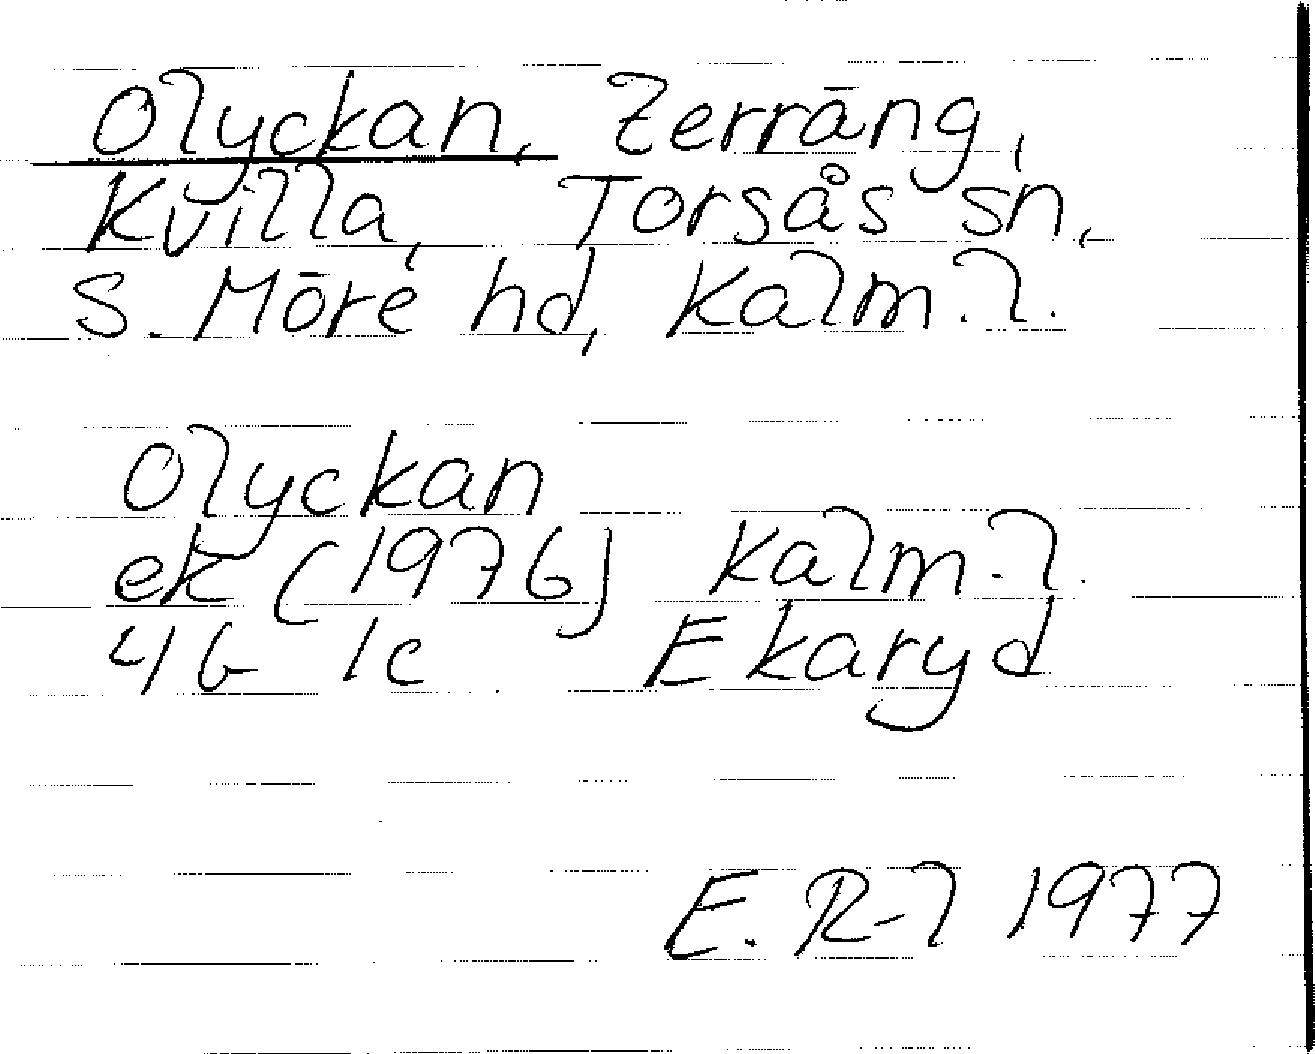 Olyckan, terräng,
Kvilla, Torsås sn,
S. Möre hd, Kalm. l.
Olyckan
ek (1976) Kalm. l.
4G 1c Ekaryd
E. R-l 1977